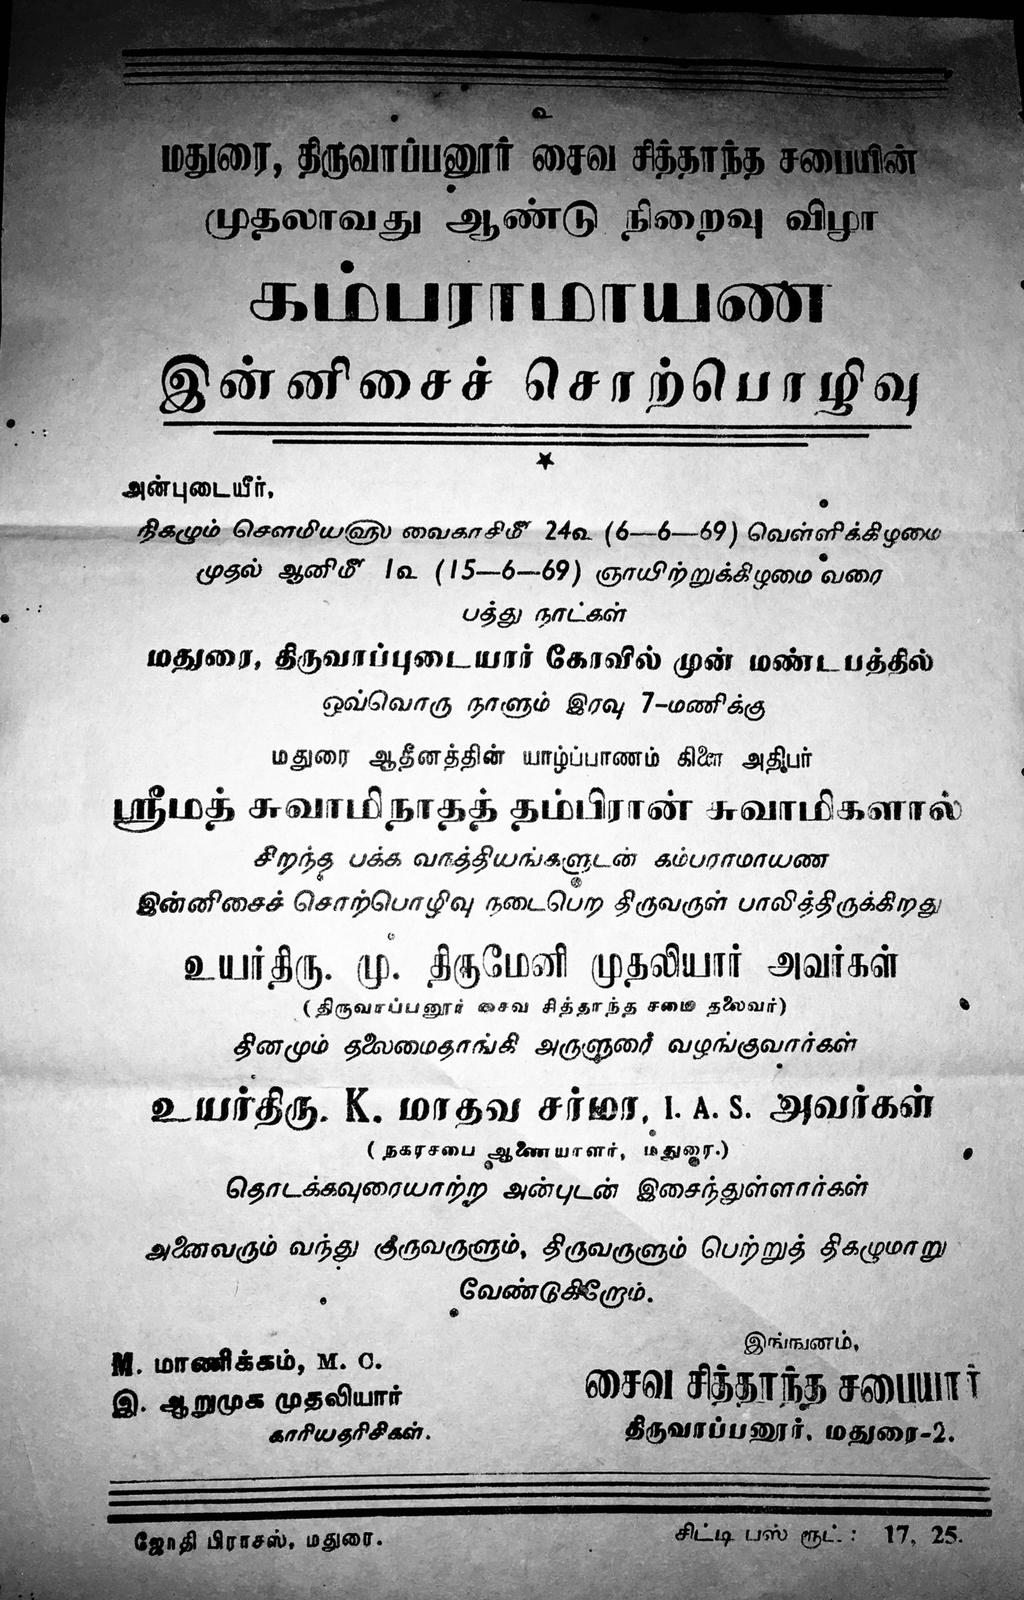 உ
மதுரை, திருவாப்பனூர் சைவ சித்தாந்த சபையின்
முதலாவது ஆண்டு நிறைவு விழா
கம்பராமாயண
இன்னிசைச் சொற்பொழிவு
அன்புடையீர்,
நிகழும் சௌமிய௵ வைகாசி௴ 24உ (6—6—69) வெள்ளிக்கிழமை
முதல் ஆனி௴ 1உ (15—6—69) ஞாயிற்றுக்கிழமை வரை
பத்து நாட்கள்
மதுரை, திருவாப்புடையார் கோவில் முன் மண்டபத்தில்
ஒவ்வொரு நாளும் இரவு 7-மணிக்கு
மதுரை ஆதீனத்தின் யாழ்ப்பாணம் கிளை அதிபர்
ஸ்ரீமத் சுவாமிநாதத் தம்பிரான் சுவாமிகளால்
சிறந்த பக்க வாத்தியங்களுடன் கம்பராமாயண
இன்னிசைச் சொற்பொழிவு நடைபெற திருவருள் பாலித்திருக்கிறது
உயர்திரு. மு. திருமேனி முதலியார் அவர்கள்
(திருவாப்பனூர் சைவ சித்தாந்த சபை தலைவர்)
தினமும் தலைமைதாங்கி அருளுரை வழங்குவார்கள்
உயர்திரு. K. மாதவ சர்மா, I. A. S. அவர்கள்
(நகரசபை ஆணையாளர், மதுரை.)
தொடக்கவுரையாற்ற அன்புடன் இசைந்துள்ளார்கள்
அனைவரும் வந்து குருவருளும், திருவருளும் பெற்றுத் திகழுமாறு
வேண்டுகிறோம்.
இங்ஙனம்,
M. மாணிக்கம், M. C.
இ. ஆறுமுக முதலியார்
காரியதரிசிகள்.
சைவ சித்தாந்த சபையார்
திருவாப்பனூர், மதுரை-2.
ஜோதி பிரசஸ், மதுரை.
சிட்டி பஸ் ரூட்.: 17, 25.